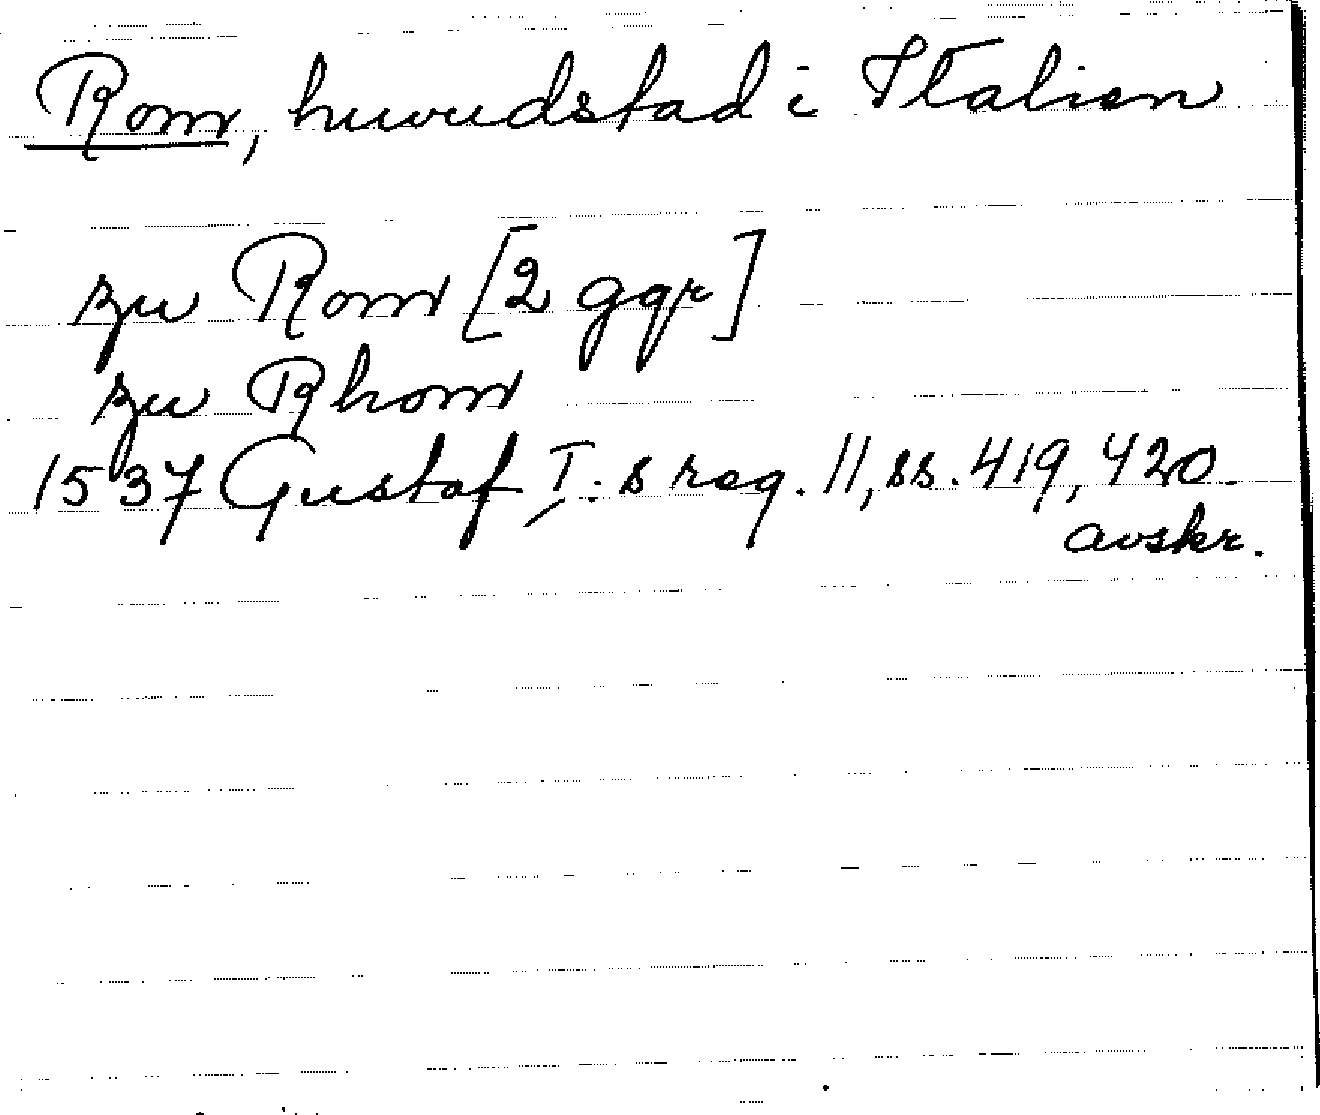 Rom, huvudstad i Italien
zu Rom [2 ggr]
zu Rhom
1537 Gustaf I:s reg. 11, ss. 419, 420.
avskr.